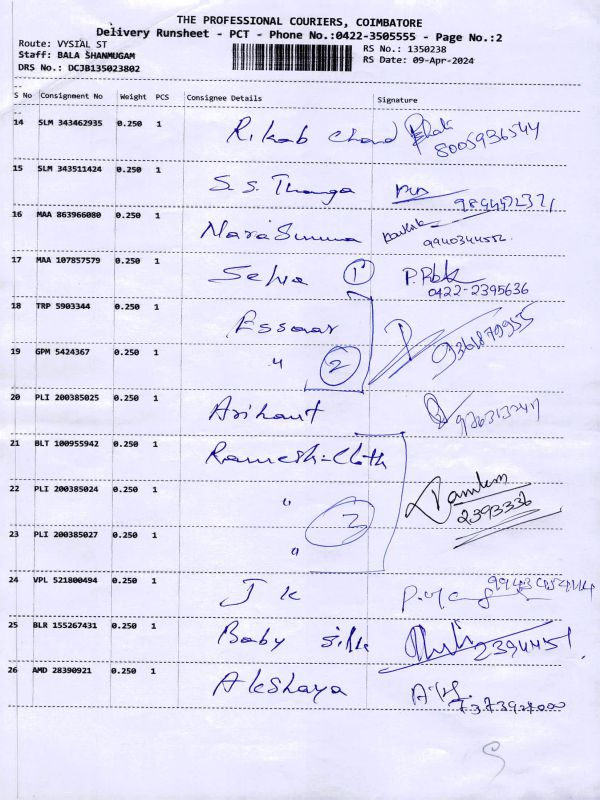 THE PROFESSIONAL COURIERS, COIMBATORE
Delivery Runsheet - PCT - Phone No.:0422-3505555 - Page No.:2
Route: VYSIAL ST
RS No.: 1350238
Staff: BALA SHANMUGAM
RS Date: 09-Apr-2024
DRS No.: DCJB135023802
S No Consignment No Weight PCS Consignee Details Signature
14 SLM 343462935 0.250 1 Rikab Chand 8005936544
15 SLM 343511424 0.250 1 S. S. Thanga
16 MAA 863966080 0.250 1 Narasimma 9940344552.
17 MAA 107857579 0.250 1 Selva 1 0422-2395636
18 TRP 5903344 0.250 1 Essaar 9361879955
19 GPM 5424367 0.250 1 " 2
20 PLI 200385025 0.250 1 Arihant
21 BLT 100955942 0.250 1 Ramesh-Cloth
22 PLI 200385024 0.250 1 " 3 2393336
23 PLI 200385027 0.250 1 "
24 VPL 521800494 0.250 1 J K
25 BLR 155267431 0.250 1 Baby Silk 2394451
26 AMD 28390921 0.250 1 Akshaya